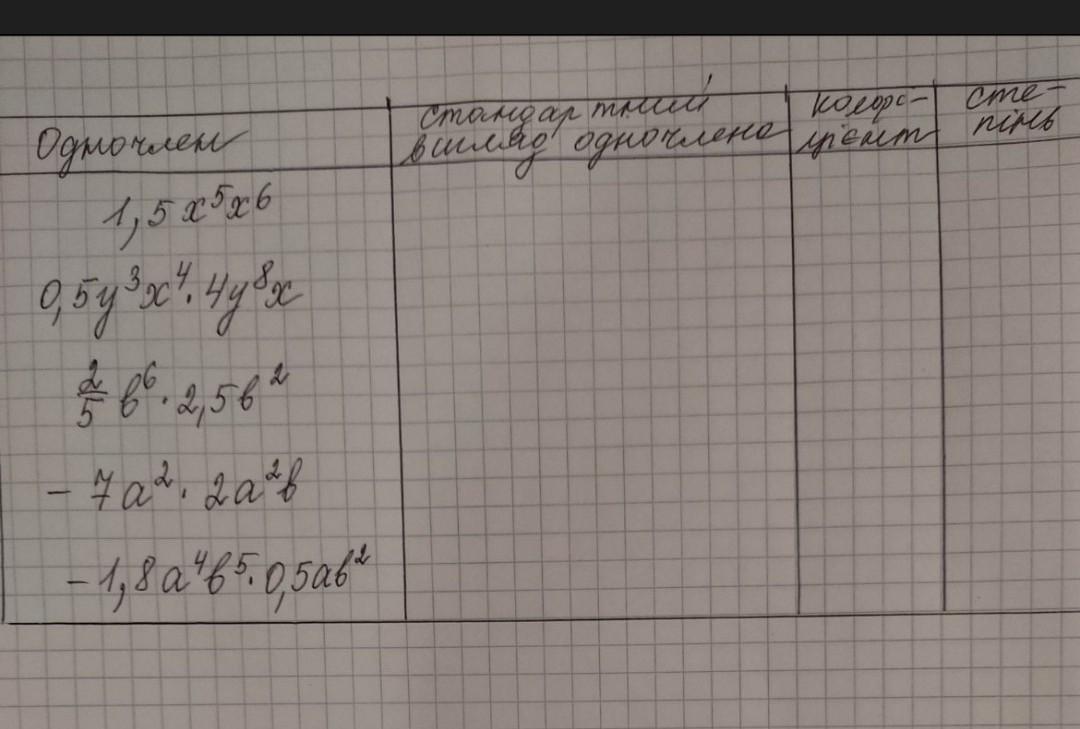 Одночлен
стандартний
вигляд одночлена
коефі-
цієнт
сте-
пінь
1,5x⁵x⁶
0,5y³x⁴·4y⁸x
2/5 b⁶·2,5b²
-7a²·2a²b
-1,8a⁴b⁵·0,5ab²